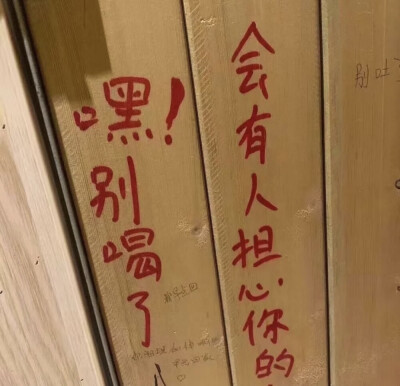 嘿！别喝了
会有人担心你的